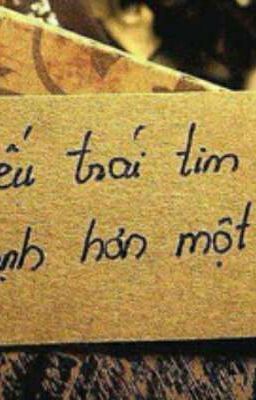 ếu trái tim
ạnh hơn một